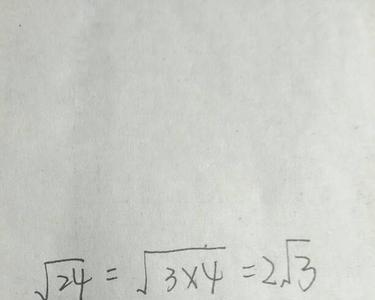 √24 = √3×4 = 2√3